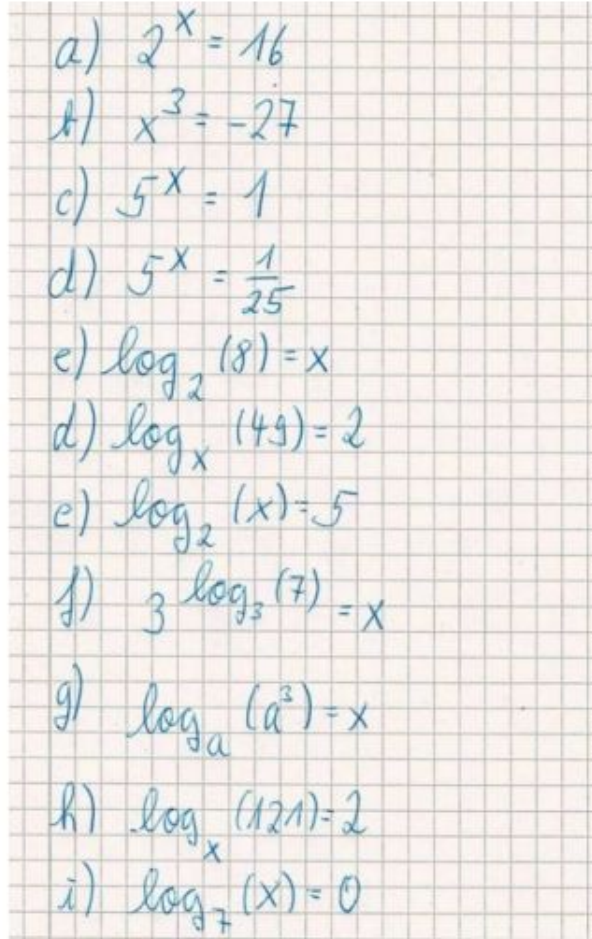 a) 2^x = 16
b) x^3 = -27
c) 5^x = 1
d) 5^x = 1/25
e) log_2 (8) = x
d) log_x (49) = 2
e) log_2 (x) = 5
f) 3^(log_3 (7)) = x
g) log_a (a^3) = x
h) log_x (121) = 2
i) log_7 (x) = 0